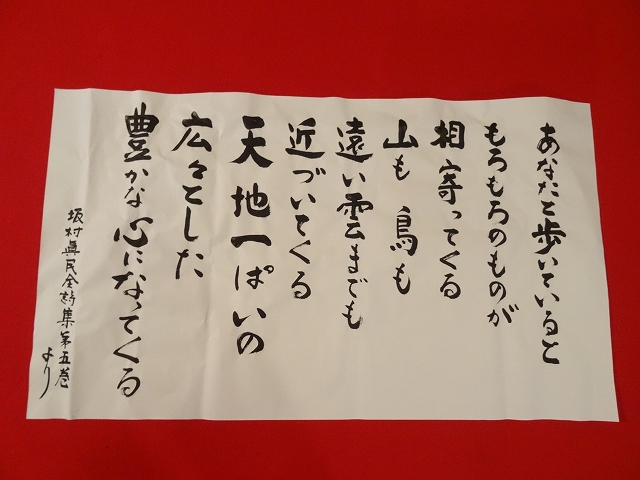 あなたと歩いていると
もろもろのものが
相寄ってくる
山も鳥も
遠い雲までも
近づいてくる
天地一ぱいの
広々とした
豊かな心になってくる
坂村眞民全詩集第五巻
より